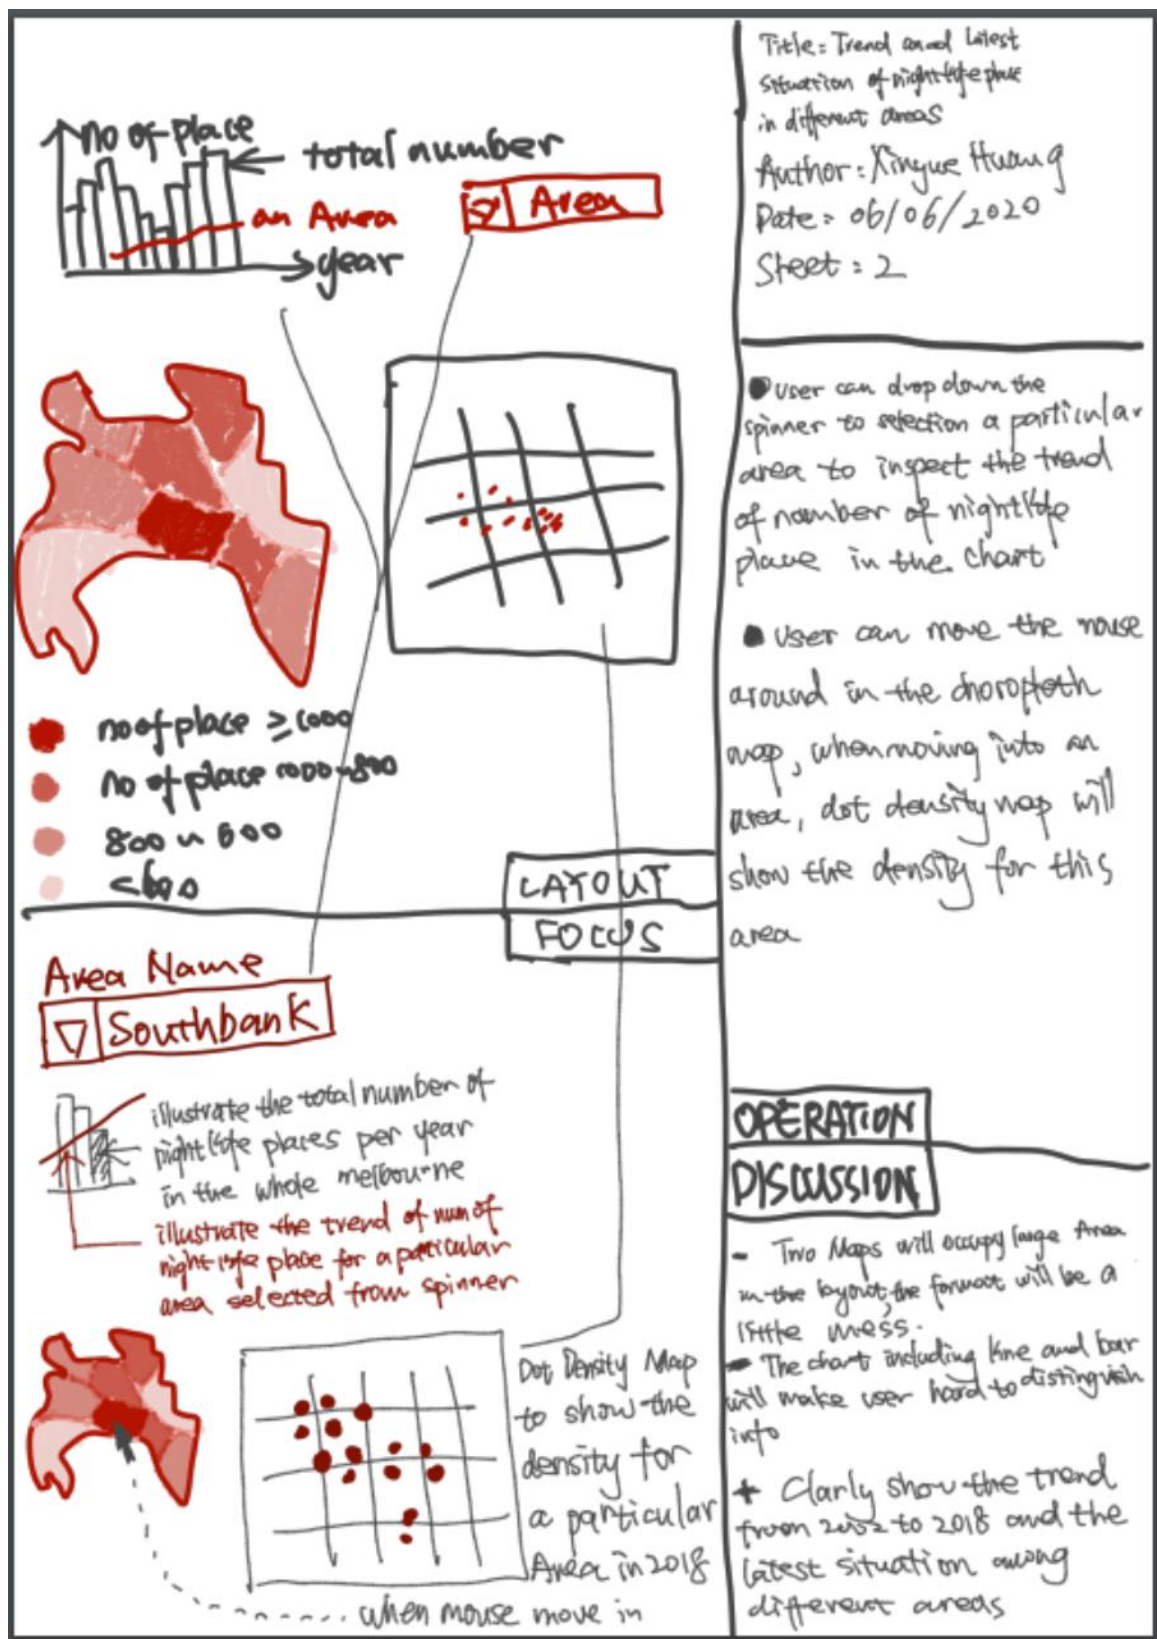 no of place
total number
an Area
Area
year
no of place ≥ 1000
no of place 1000~800
800 ~ 600
<600
LAYOUT
FOCUS
Area Name
Southbank
illustrate the total number of
nightlife places per year
in the whole melbourne
illustrate the trend of num of
night life place for a particular
area selected from spinner
Dot Density Map
to show the
density for
a particular
Area in 2018
when mouse move in
Title: Trend and latest
situation of nightlife place
in different areas
Author: Xingyue Huang
Date: 06/06/2020
Sheet: 2
● user can drop down the
spinner to selection a particular
area to inspect the trend
of number of nightlife
place in the chart
● user can move the mouse
around in the choropleth
map, when moving into an
area, dot density map will
show the density for this
area
OPERATION
DISCUSSION
- Two Maps will occupy large Area
in the layout, the format will be a
little mess.
- The chart including line and bar
will make user hard to distinguish
info
+ Clarly show the trend
from 2002 to 2018 and the
latest situation among
different areas